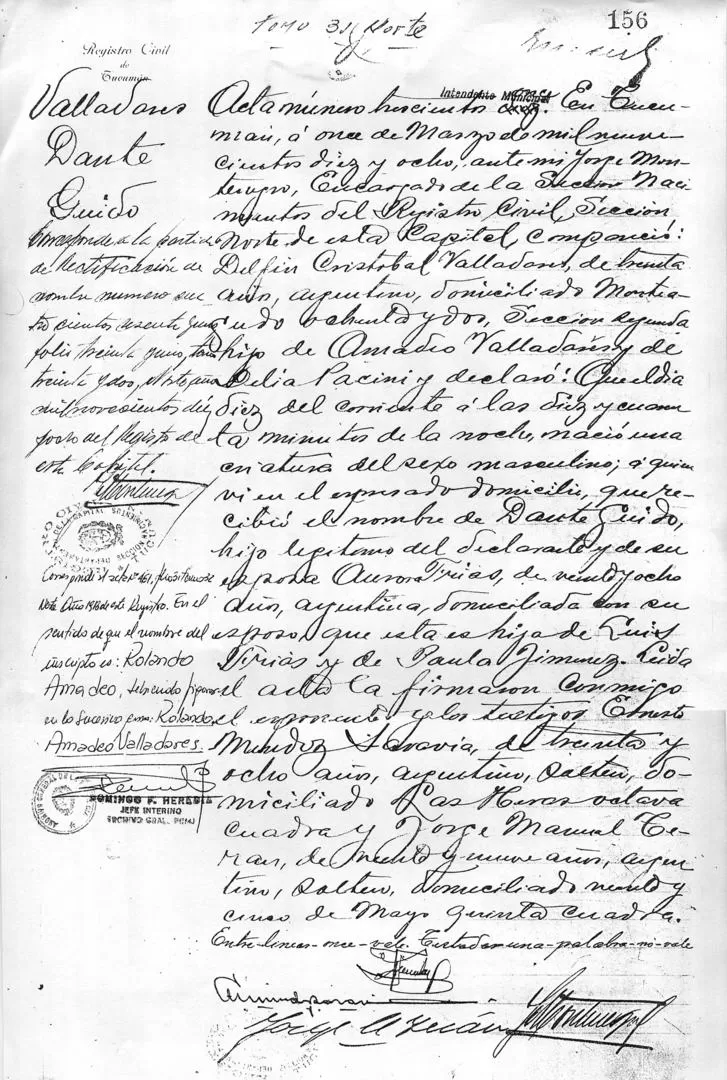 Tomo 31 Norte
156
Registro Civil
de
Tucumán
Intendente Municipal
Valladares
Dante
Guido
Corresponde a la partida
de Rectificación de
nombre numero cua
tro cientos sesenta y uno
folio treinta y uno, tomo
treinta y dos, Norte año
mil novecientos diez
y ocho del Registro de
esta Capital.
Corresponde al acta Nº 461,
Norte Año 1918 de este Registro. En el
sentido de que el nombre del
inscripto es: Rolando
Amadeo, debiendo figurar
en lo sucesivo como: Rolando
Amadeo Valladares.
DOMINGO F. HEREDIA
JEFE INTERINO
ARCHIVO GRAL. P. JUD.
Acta número trescientos En Tucu-
mán, á once de Marzo de mil nueve-
cientos diez y ocho, ante mi Jorge Mon-
tenegro, Encargado de la Seccion Naci-
mientos del Registro Civil, Seccion
Norte de esta Capital, compareció:
Delfin Cristobal Valladares, de treinta
años, argentino, domiciliado Montea-
gudo ochenta y dos, Seccion segunda
hijo de Amadeo Valladares y de
Delia Pacini y declaró: Que el dia
diez del corriente á las diez y cuaren
ta minutos de la noche, nació una
criatura del sexo masculino; á quien
vi en el expresado domicilio, que re-
cibió el nombre de Dante Guido,
hijo legitimo del declarante y de su
esposa Aurora Frias, de veinte y ocho
años, argentina, domiciliada con su
esposo, que esta es hija de Luis
Frias y de Paula Jimenez. Leida
el acta la firmaron conmigo
el exponente y los testigos Ernesto
Mendez Saravia, de treinta y
ocho años, argentino, soltero, do-
miciliado Las Heras octava
cuadra y Jorge Manuel Te-
ran, de veinte y nueve años, argen
tino, soltero, domiciliado veinte y
cinco de Mayo quinta cuadra.
Entre-lineas-once-vale. Testado-una-palabra-no-vale